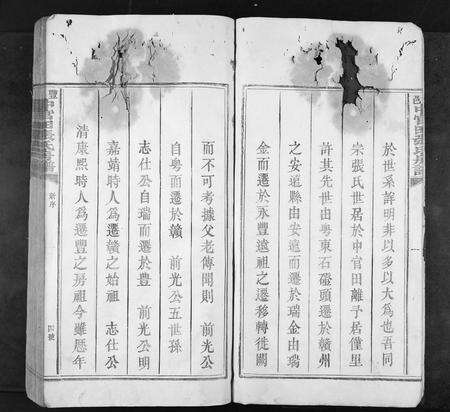 於世系詳明非以多以大為也吾同
宗張氏世居於申官田離予居僅里
許其先世由粵東石磴頭遷於贛州
之安遠縣由安遠而遷於瑞金由瑞
金而遷於永豐遠祖之遷移轉徙闕
而不可考據父老傳聞則 前光公
自粵而遷於贛 前光公五世孫
志仕公自瑞而遷於豊 前光公明
嘉靖時人為遷贛之始祖 志仕公
清康熙時人為遷豊之房祖今雖歷年
新序
四號